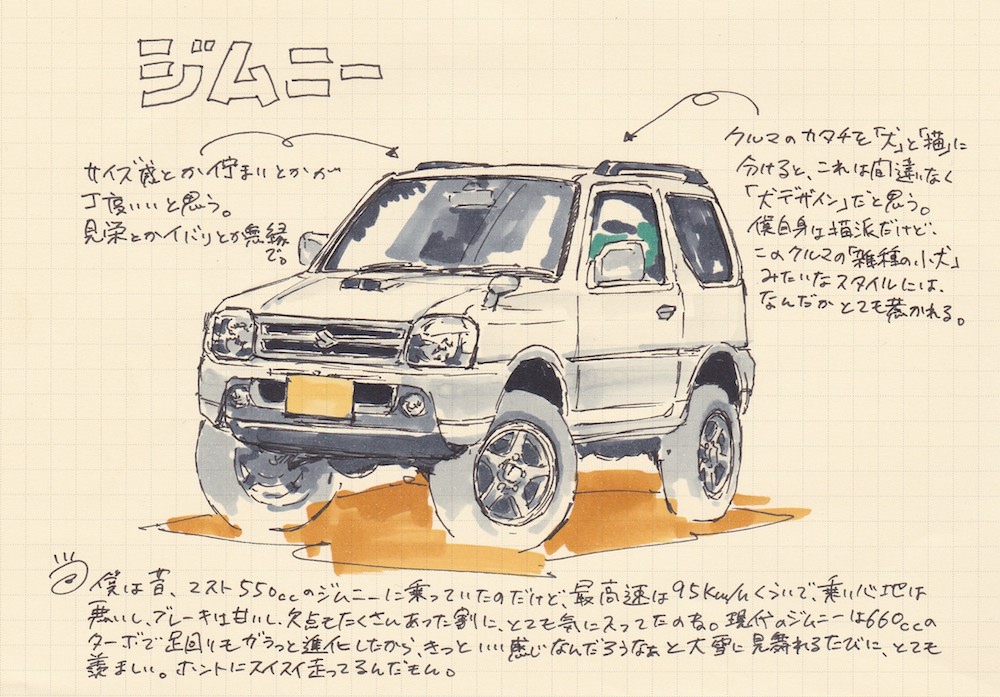 ジムニー
サイズ感とか佇まいとかが
丁度いいと思う。
見栄とかイバリとか無縁
で。
クルマのカタチを「犬」と「猫」に
分けると、これは間違いなく
「犬デザイン」だと思う。
僕自身は猫派だけど、
このクルマの「雑種の小犬」
みたいなスタイルには、
なんだかとても惹かれる。
僕は昔、2スト550ccのジムニーに乗っていたのだけど、最高速は95Km/hくらいで、乗り心地は
悪いし、ブレーキは甘いし、欠点もたくさんあった割に、とても気に入ってたのね。現代のジムニーは660ccの
ターボで足回りもガラっと進化したから、きっといい感じなんだろうなぁと大雪に見舞れるたびに、とても
羨ましい。ホントにスイスイ走ってるんだもん。